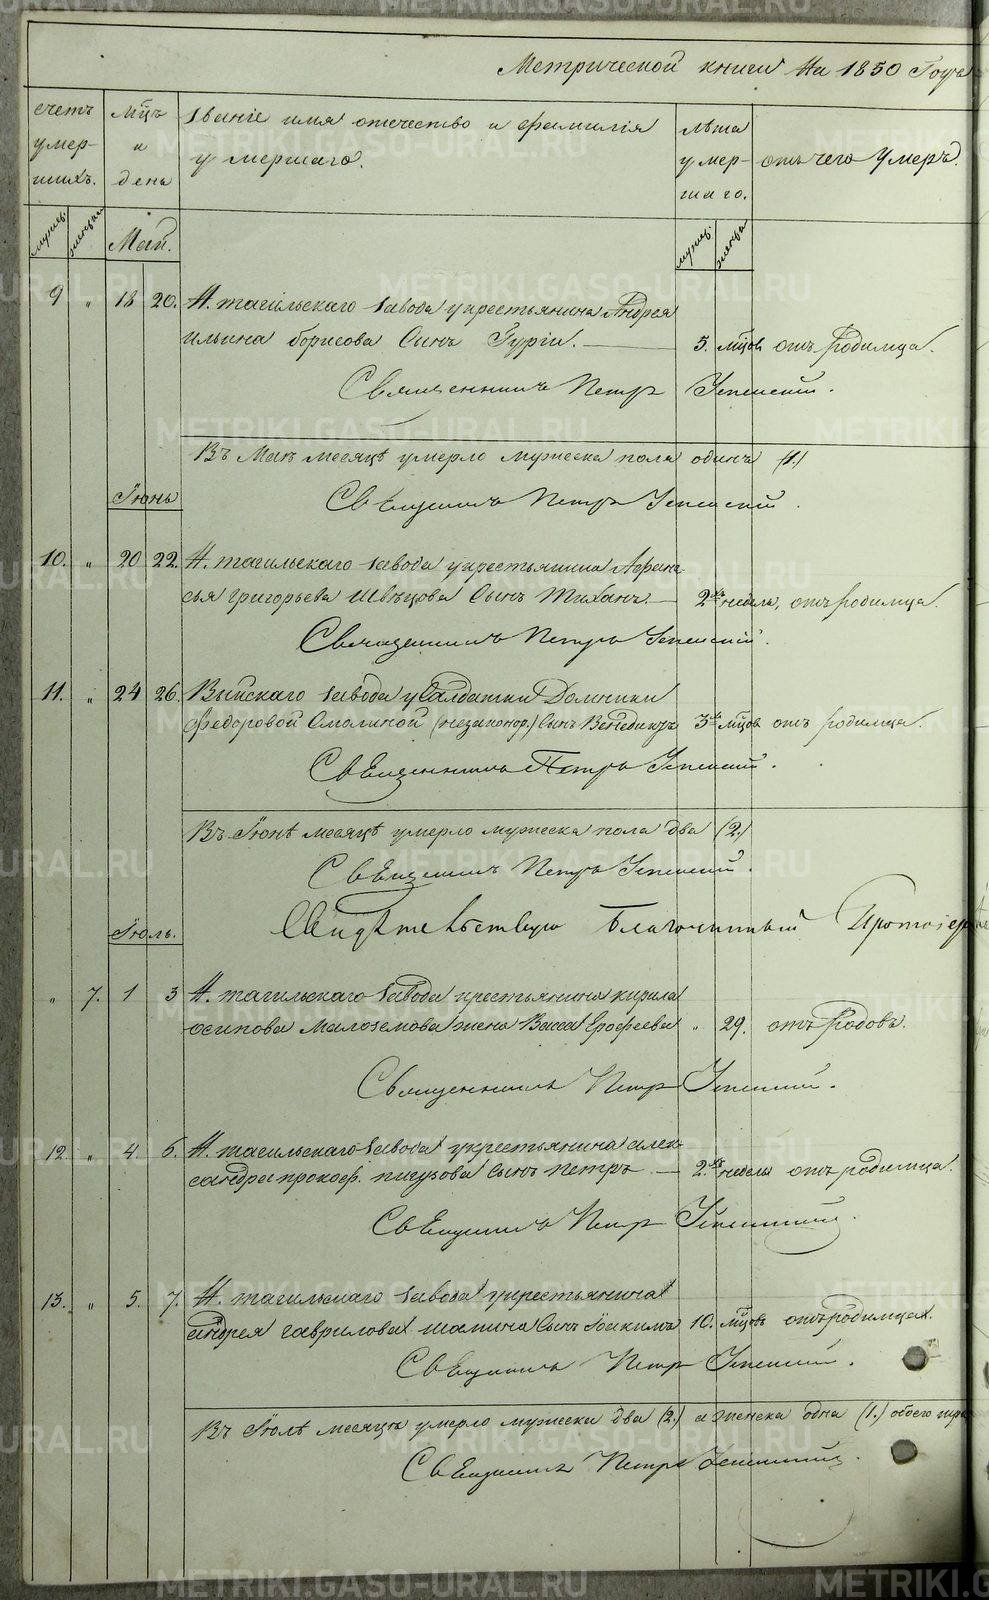 Метрической книги на 1850 Годъ
счетъ умер-шихъ.
мцъ и день
званіе имя отечество и фамилія умершаго.
лѣта умер-шаго.
отъ чего умеръ.
мужес. женска
Май.
мужес. женска
9 " 18 20. Н. тагильскаго завода у крестьянина Андрея
ильина борисова Сынъ Гурій. — 5. мцовъ отъ родимца.
Священникъ Петръ Успенскій.
Въ Маѣ месяцѣ умерло мужеска пола одинъ (1.)
Священникъ Петръ Успенскій.
Іюнь
10. " 20 22. Н. тагильскаго завода у крестьянина Афана-
сья григорьева Швецова Сынъ Тиханъ. — 2хъ недель, отъ родимца.
Священникъ Петръ Успенскій.
11. " 24 26. Выйскаго завода у Салдатки Домники
Федоровой Смолиной (незаконор.) Сынъ Венедиктъ 3хъ мцовъ отъ родимца.
Священникъ Петръ Успенскій.
Въ Іюнѣ месяцѣ умерло мужеска пола два (2.)
Священникъ Петръ Успенскій.
Свидѣтельствую Благочинный Протоіерей
Іюль.
" 7. 1 3 Н. тагильскаго завода крестьянина кирила
осипова Малоземова жена Васса Ерофеева " 29. отъ Родовъ.
Священникъ Петръ Успенскій.
12. " 4. 6. Н. тагильскаго завода у крестьянина алек-
сандра прокоф. пичугова Сынъ петръ — 2.хъ недель отъ родимца.
Священникъ Петръ Успенскій.
13. " 5. 7. Н. тагильскаго завода у крестьянина
андрея гаврилова шатина Сынъ Іоакимъ 10. мцовъ отъ родимца.
Священникъ Петръ Успенскій.
Въ Іюлѣ месяцѣ умерло мужеска два (2.) а женска одна (1.) обоего
Священникъ Петръ Успенскій.
METRIKI.GASO-URAL.RU